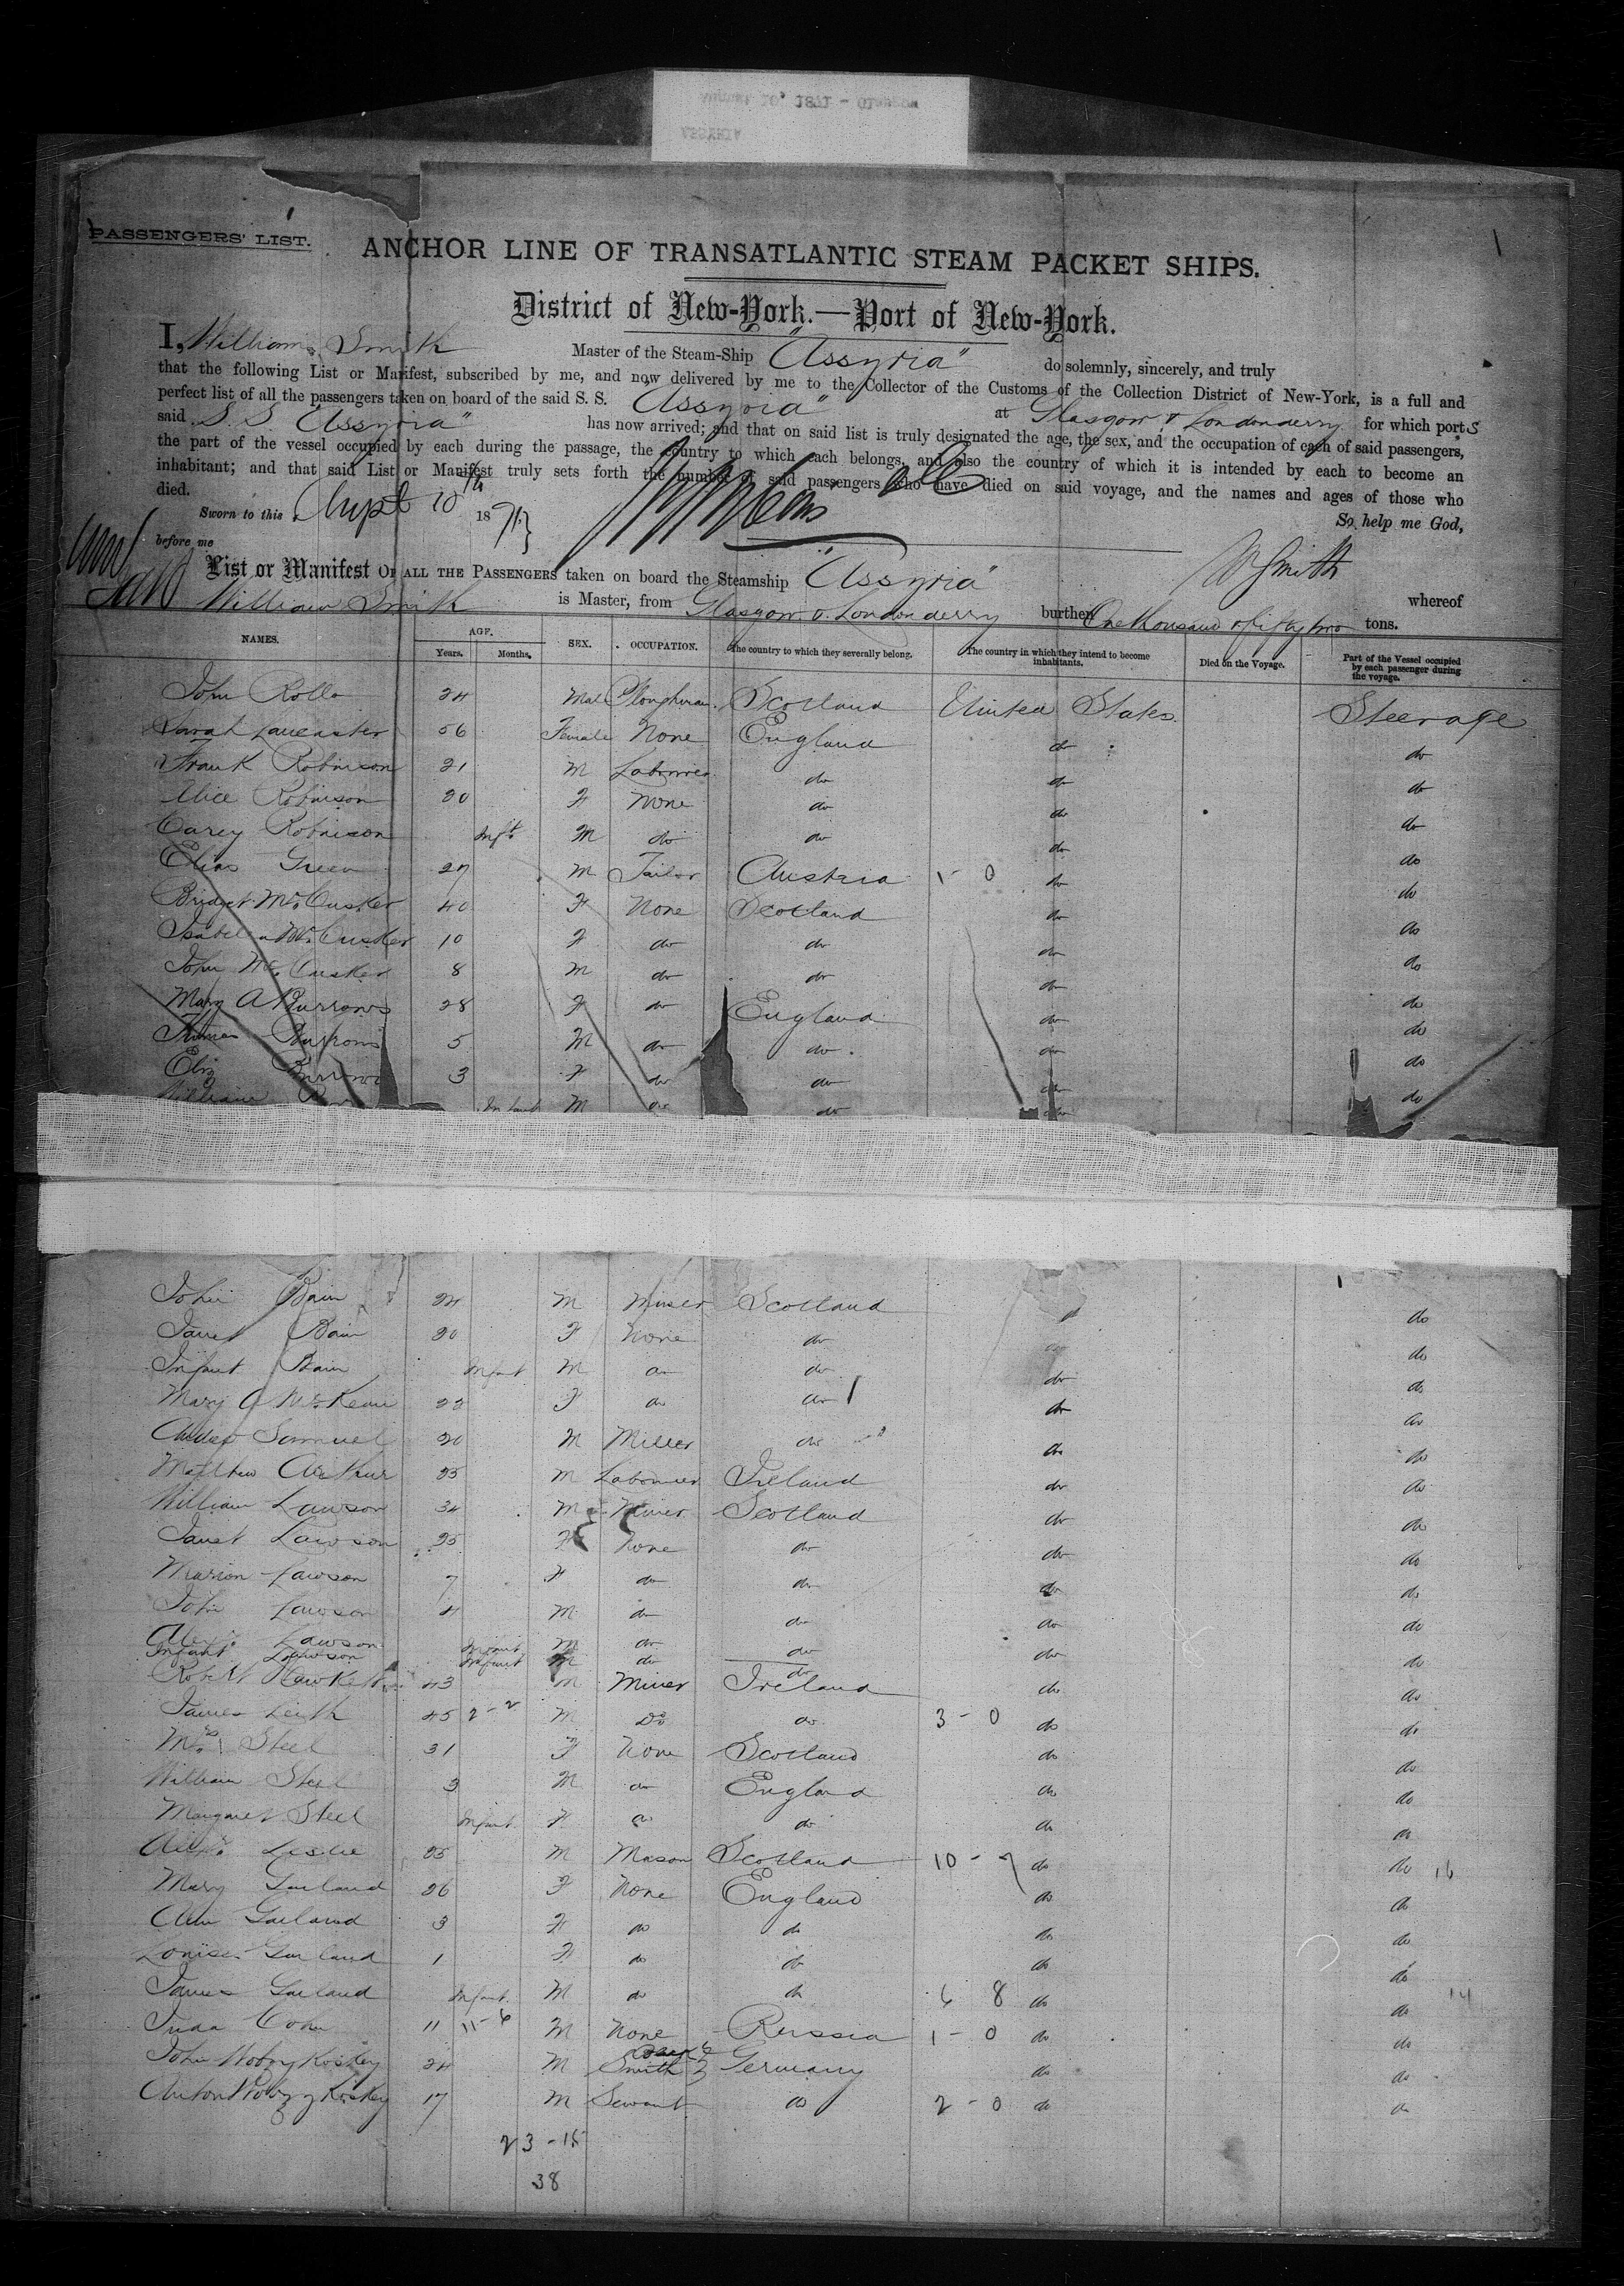 August 10, 1871 - Glasgow
ASSYRIA
PASSENGERS' LIST.
ANCHOR LINE OF TRANSATLANTIC STEAM PACKET SHIPS.
District of New-York.—Port of New-York.
I, William Smith Master of the Steam-Ship "Assyria" do solemnly, sincerely, and truly
that the following List or Manifest, subscribed by me, and now delivered by me to the Collector of the Customs of the Collection District of New-York, is a full and
perfect list of all the passengers taken on board of the said S. S. "Assyria" at Glasgow & Londonderry for which ports
said S. S. "Assyria" has now arrived; and that on said list is truly designated the age, the sex, and the occupation of each of said passengers,
the part of the vessel occupied by each during the passage, the country to which each belongs, and also the country of which it is intended by each to become an
inhabitant; and that said List or Manifest truly sets forth the number of said passengers who have died on said voyage, and the names and ages of those who
died.
So help me God,
Sworn to this Augst 10th 1871
before me
W Smith
List or Manifest OF ALL THE PASSENGERS taken on board the Steamship "Assyria" whereof
William Smith is Master, from Glasgow & Londonderry burthen One thousand & fifty two tons.
NAMES. AGE. Years. Months. SEX. OCCUPATION. The country to which they severally belong. The country in which they intend to become inhabitants. Died on the Voyage. Part of the Vessel occupied by each passenger during the voyage.
John Rollo 24 Male Ploughman Scotland United States Steerage
Sarah Lancaster 56 Female None England do do
Frank Robinson 21 M Labourer do do do
Alice Robinson 20 F None do do do
Carey Robinson Inft. M do do do do
Elias Green 27 M Tailor Austria 1 - 0 do do
Bridget McCusker 40 F None Scotland do do
Isabella McCusker 10 F do do do do
John McCusker 8 M do do do do
Mary A Burrows 28 F do England do do
Burrows 5 M do do do do
Eliz Burrows 3 F do do do do
William Infant M do do do
John Bain 24 M Miner Scotland do do
Janet Bain 20 F None do do do
Infant Bain Infant M do do do do
Mary A McKean 22 F do do do do
Samuel 20 M Miller do do do
Matthew Arthur 25 M Labourer Ireland do do
William Lawson 34 M Miner Scotland do do
Janet Lawson 25 F None do do do
Marion Lawson 7 F do do do do
John Lawson 4 M do do do do
Alexr. Lawson Infant M do do do do
Infant Lawson Infant M do do
Robert 43 M Miner Ireland do do
James Leith 45 2 - 2 M Do do 3 - 0 do do
Mrs. Steel 31 F None Scotland do do
William Steel 3 M do England do do
Margaret Steel Infant F do do do do
Alexr. Leslie 25 M Mason Scotland 10 - 7 do do 16
Mary Garland 26 F None England do do
Ann Garland 3 F do do do do
Louisa Garland 1 F do do do do
James Garland Infant M do do 6 8 do do 14
11 11 - 6 M None Russia 1 - 0 do do
John 24 M Smith Germany do do
Anton 17 M Servant do 2 - 0 do do
23 - 15
38